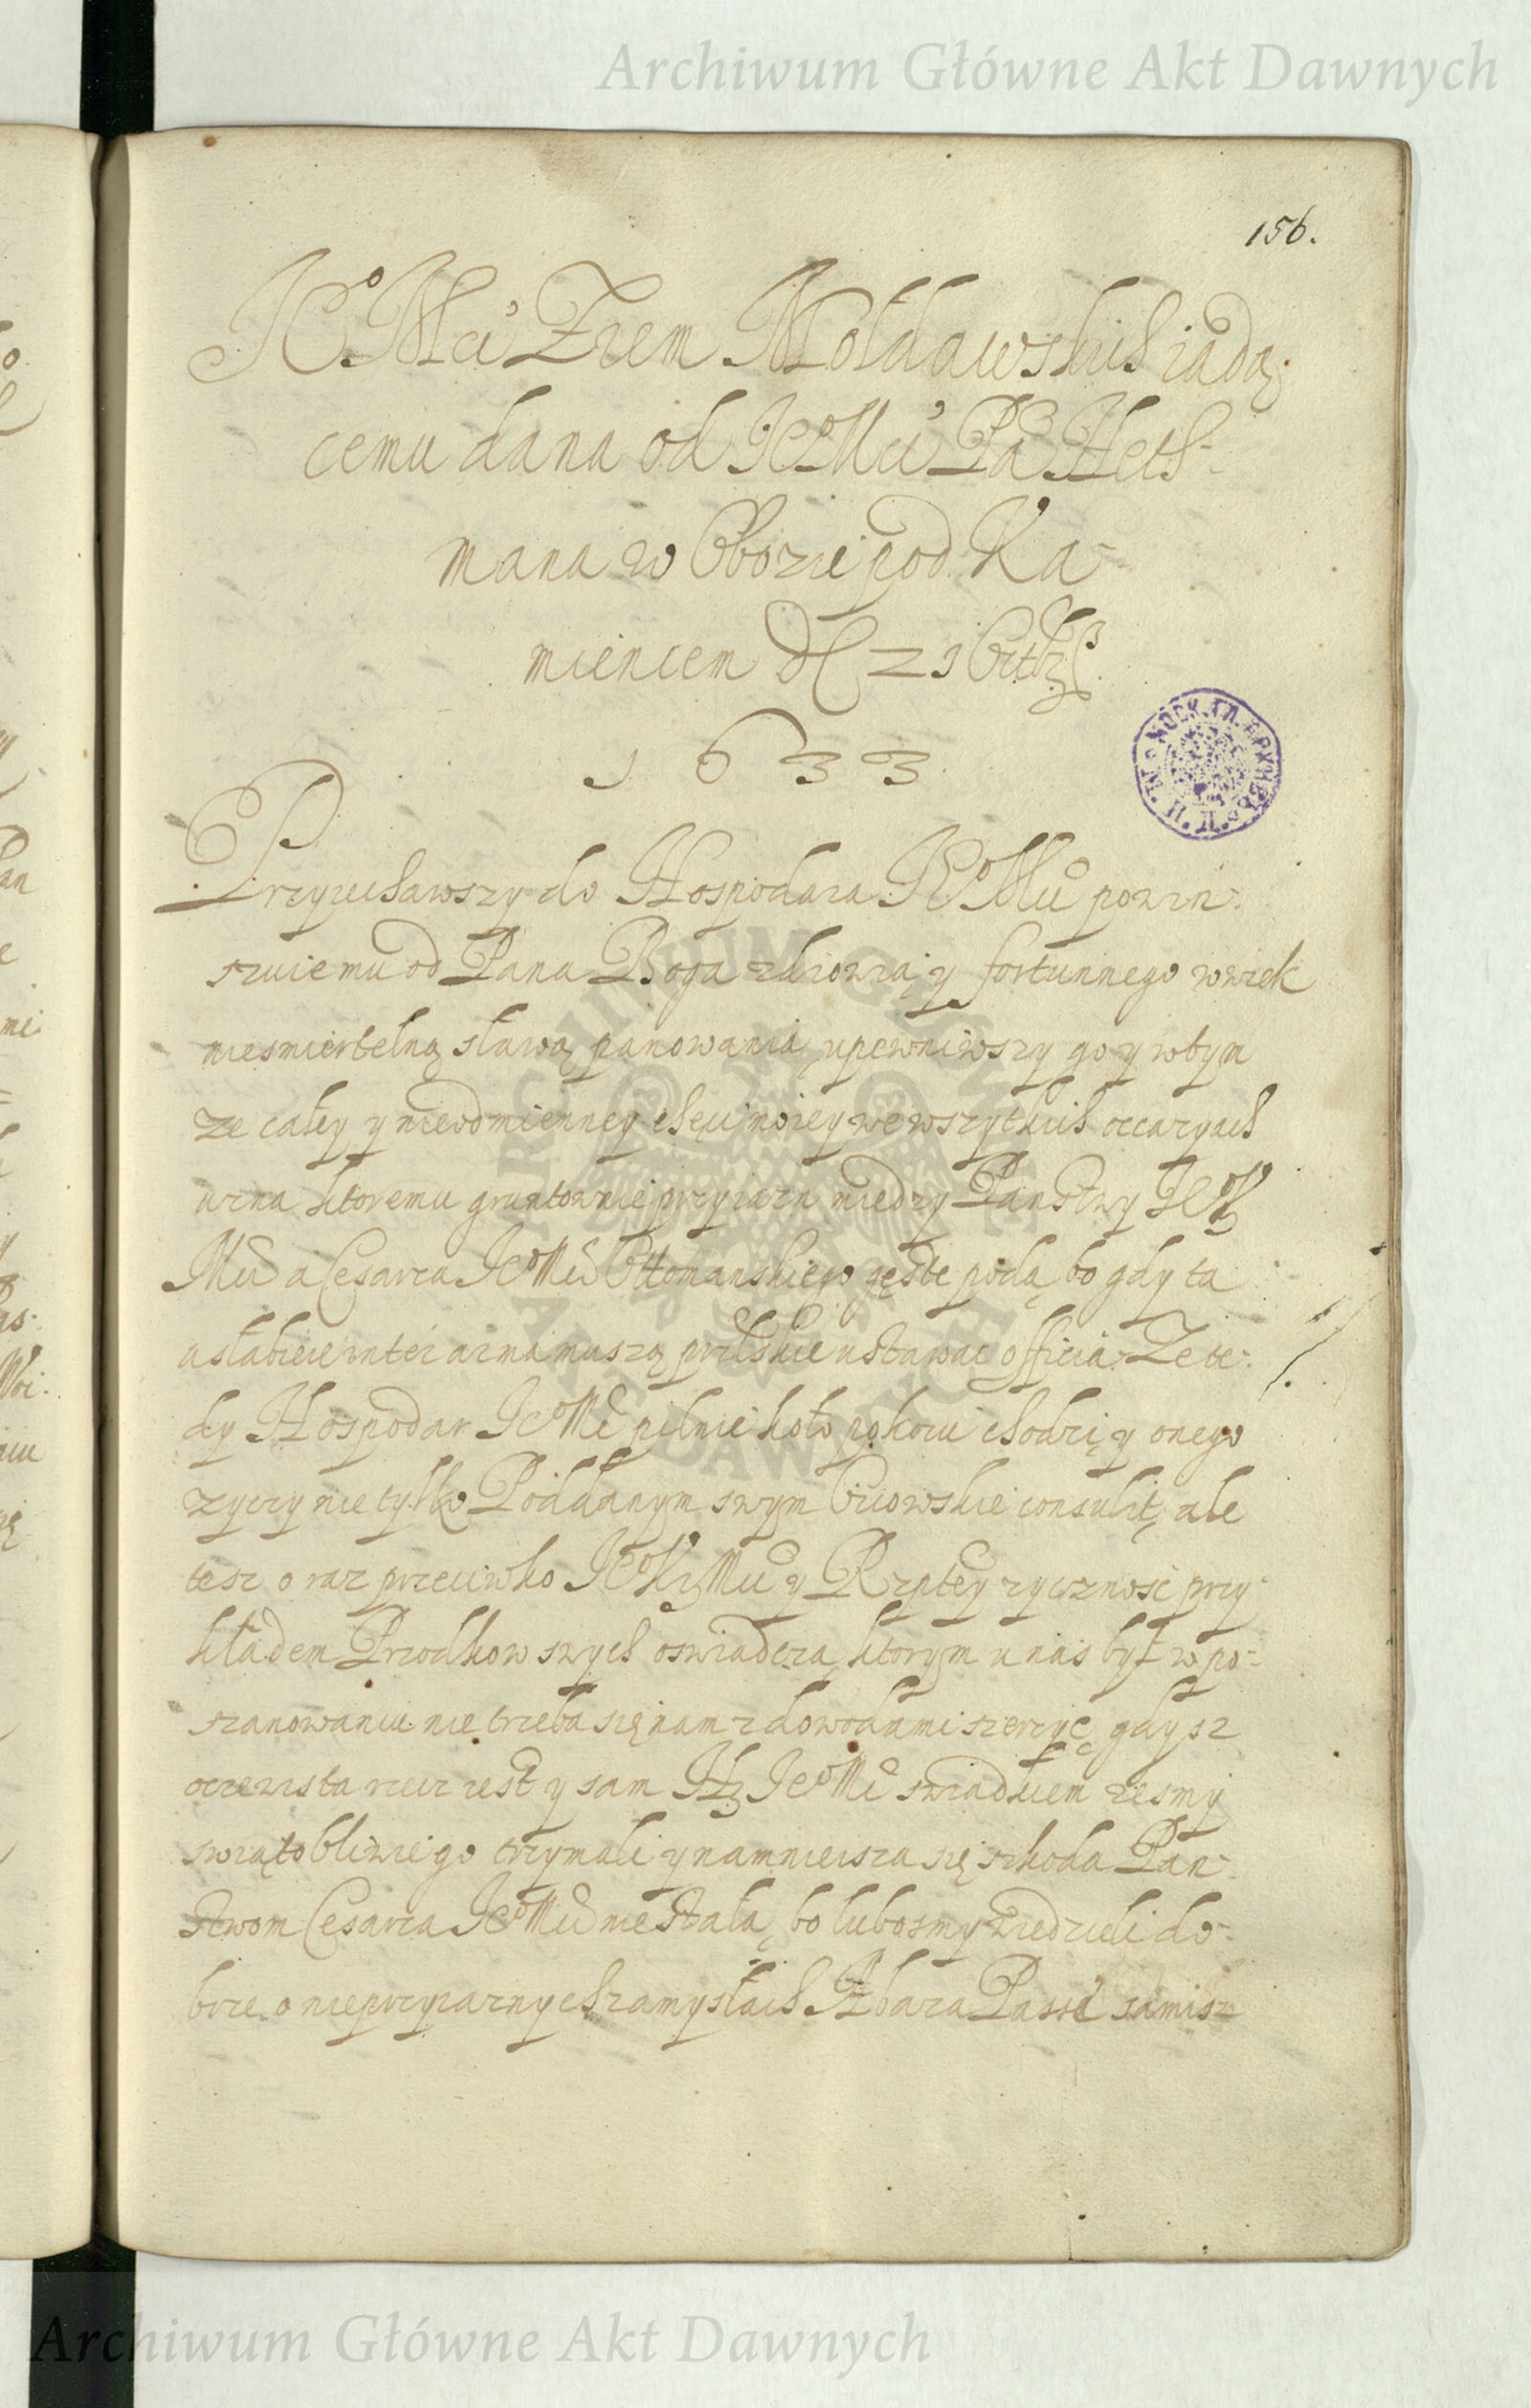 Archiwum Główne Akt Dawnych
156.
JeoMci Ziem Mołdawskich iadą-
cemu dana od JeoMci Pa Het-
mana w Obozie pod Ka-
miencem 21
1633
Przyiechawszy do Hospodara JeoMci powin-
szuie mu od Pana Boga zdrowia, y fortunnego w wiek
niesmiertelną sławą panowania, upewniwszy go y w tym
ze całey y nieodmienney chęci moiey we wszytkich occazyach
uzna ktoremu gruntownie przyiazn miedzy Panstwy JeoK
Mci a Cesarza JeoMci Ottomanskiego gęste podą, bo gdy ta
usłabieie inter arma muszą ustawac officia. Ze te-
dy Hospodar JeoMc pilnie koło pokoiu chodzi, y onego
zyczy nie tylko Poddanym swym Oicowskie consulit, ale
tesz oraz przeciwko JeoKrMci y Rzptey zycznosc przy-
kładem Przodkow swych oswiadcza, ktorym u nas był w po-
szanowaniu nie trzeba się nam z dowodami szerzyc, gdysz
oczewista rzecz iest y sam H JeoMc swiadkiem zesmy
swiątobliwie go trzymali y namnieisza się szkoda Pan-
stwom Cesarza JeoMci nie stała, bo lubosmy wiedzieli do-
brze o nieprzyiaznych zamysłach Abaza Passi samisz
Archiwum Główne Akt Dawnych